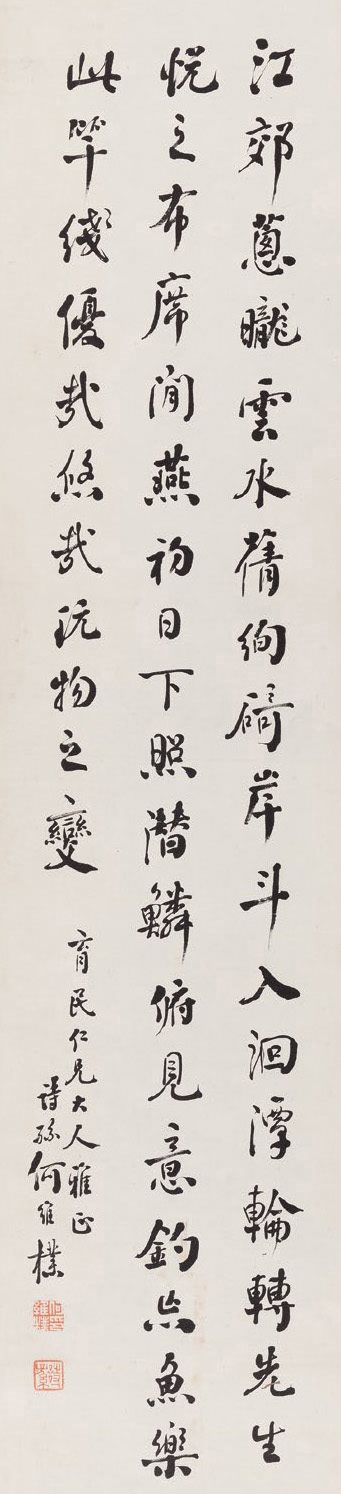 江郊蔥曨雲水蒨絢碕岸斗入洄潭輪轉先生
悅之布席閒燕初日下照潛鱗俯見意釣忘魚樂
此竿綫優哉悠哉玩物之變
育民仁兄大人雅正
詩孫何維樸